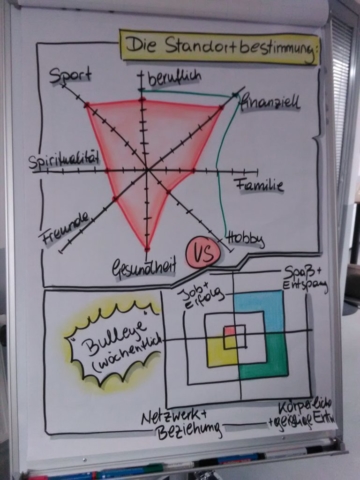 Die Standortbestimmung:
Sport
beruflich
finanziell
Spiritualität
Familie
Freunde
Hobby
Gesundheit
VS
Job+
Erfolg
Spaß+
Entspang
Bulleye
(wöchentlich
Netzwerk+
Beziehung
Körperliche
+geistige